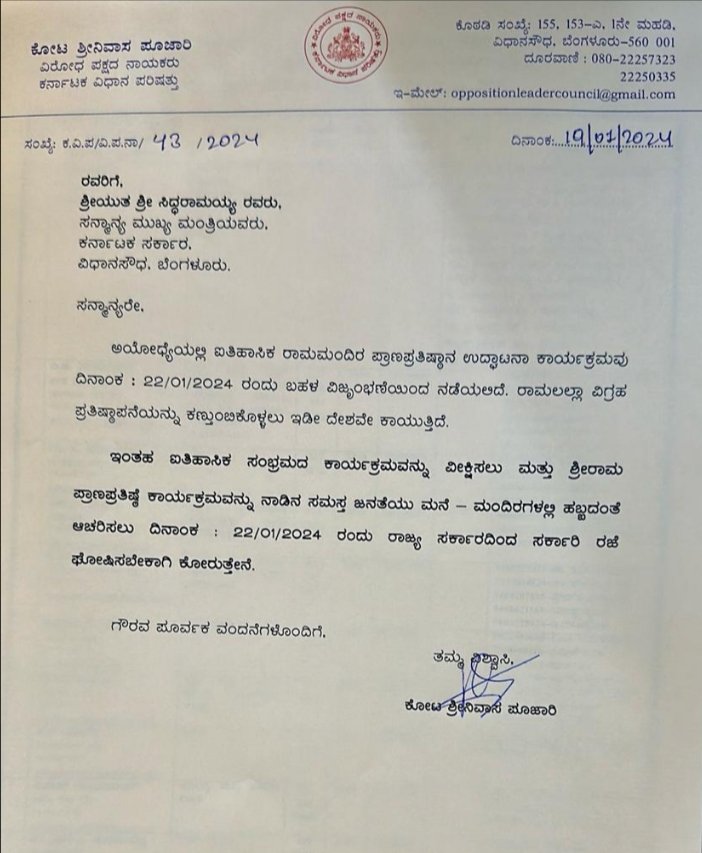 ಕೋಟ ಶ್ರೀನಿವಾಸ ಪೂಜಾರಿ
ವಿರೋಧ ಪಕ್ಷದ ನಾಯಕರು
ಕರ್ನಾಟಕ ವಿಧಾನ ಪರಿಷತ್ತು
ವಿರೋಧ ಪಕ್ಷದ ನಾಯಕರು
ಕರ್ನಾಟಕ ವಿಧಾನ ಪರಿಷತ್ತು
ಕೊಠಡಿ ಸಂಖ್ಯೆ: 155, 153-ಎ, 1ನೇ ಮಹಡಿ,
ವಿಧಾನಸೌಧ, ಬೆಂಗಳೂರು-560 001
ದೂರವಾಣಿ : 080-22257323
22250335
ಇ-ಮೇಲ್: oppositionleadercouncil@gmail.com
ಸಂಖ್ಯೆ: ಕ.ವಿ.ಪ/ವಿ.ಪ.ನಾ/ 43 /2024
ದಿನಾಂಕ:...19/01/2024
ರವರಿಗೆ,
ಶ್ರೀಯುತ ಶ್ರೀ ಸಿದ್ಧರಾಮಯ್ಯ ರವರು,
ಸನ್ಮಾನ್ಯ ಮುಖ್ಯ ಮಂತ್ರಿಯವರು,
ಕರ್ನಾಟಕ ಸರ್ಕಾರ,
ವಿಧಾನಸೌಧ, ಬೆಂಗಳೂರು.
ಸನ್ಮಾನ್ಯರೇ,
ಅಯೋಧ್ಯೆಯಲ್ಲಿ ಐತಿಹಾಸಿಕ ರಾಮಮಂದಿರ ಪ್ರಾಣಪ್ರತಿಷ್ಠಾನ ಉದ್ಘಾಟನಾ ಕಾರ್ಯಕ್ರಮವು
ದಿನಾಂಕ : 22/01/2024 ರಂದು ಬಹಳ ವಿಜೃಂಭಣೆಯಿಂದ ನಡೆಯಲಿದೆ. ರಾಮಲಲ್ಲಾ ವಿಗ್ರಹ
ಪ್ರತಿಷ್ಠಾಪನೆಯನ್ನು ಕಣ್ತುಂಬಿಕೊಳ್ಳಲು ಇಡೀ ದೇಶವೇ ಕಾಯುತ್ತಿದೆ.
ಇಂತಹ ಐತಿಹಾಸಿಕ ಸಂಭ್ರಮದ ಕಾರ್ಯಕ್ರಮವನ್ನು ವೀಕ್ಷಿಸಲು ಮತ್ತು ಶ್ರೀರಾಮ
ಪ್ರಾಣಪ್ರತಿಷ್ಠೆ ಕಾರ್ಯಕ್ರಮವನ್ನು ನಾಡಿನ ಸಮಸ್ತ ಜನತೆಯು ಮನೆ – ಮಂದಿರಗಳಲ್ಲಿ ಹಬ್ಬದಂತೆ
ಆಚರಿಸಲು ದಿನಾಂಕ : 22/01/2024 ರಂದು ರಾಜ್ಯ ಸರ್ಕಾರದಿಂದ ಸರ್ಕಾರಿ ರಜೆ
ಘೋಷಿಸಬೇಕಾಗಿ ಕೋರುತ್ತೇನೆ.
ಗೌರವ ಪೂರ್ವಕ ವಂದನೆಗಳೊಂದಿಗೆ,
ತಮ್ಮ ವಿಶ್ವಾಸಿ,
ಕೋಟ ಶ್ರೀನಿವಾಸ ಪೂಜಾರಿ